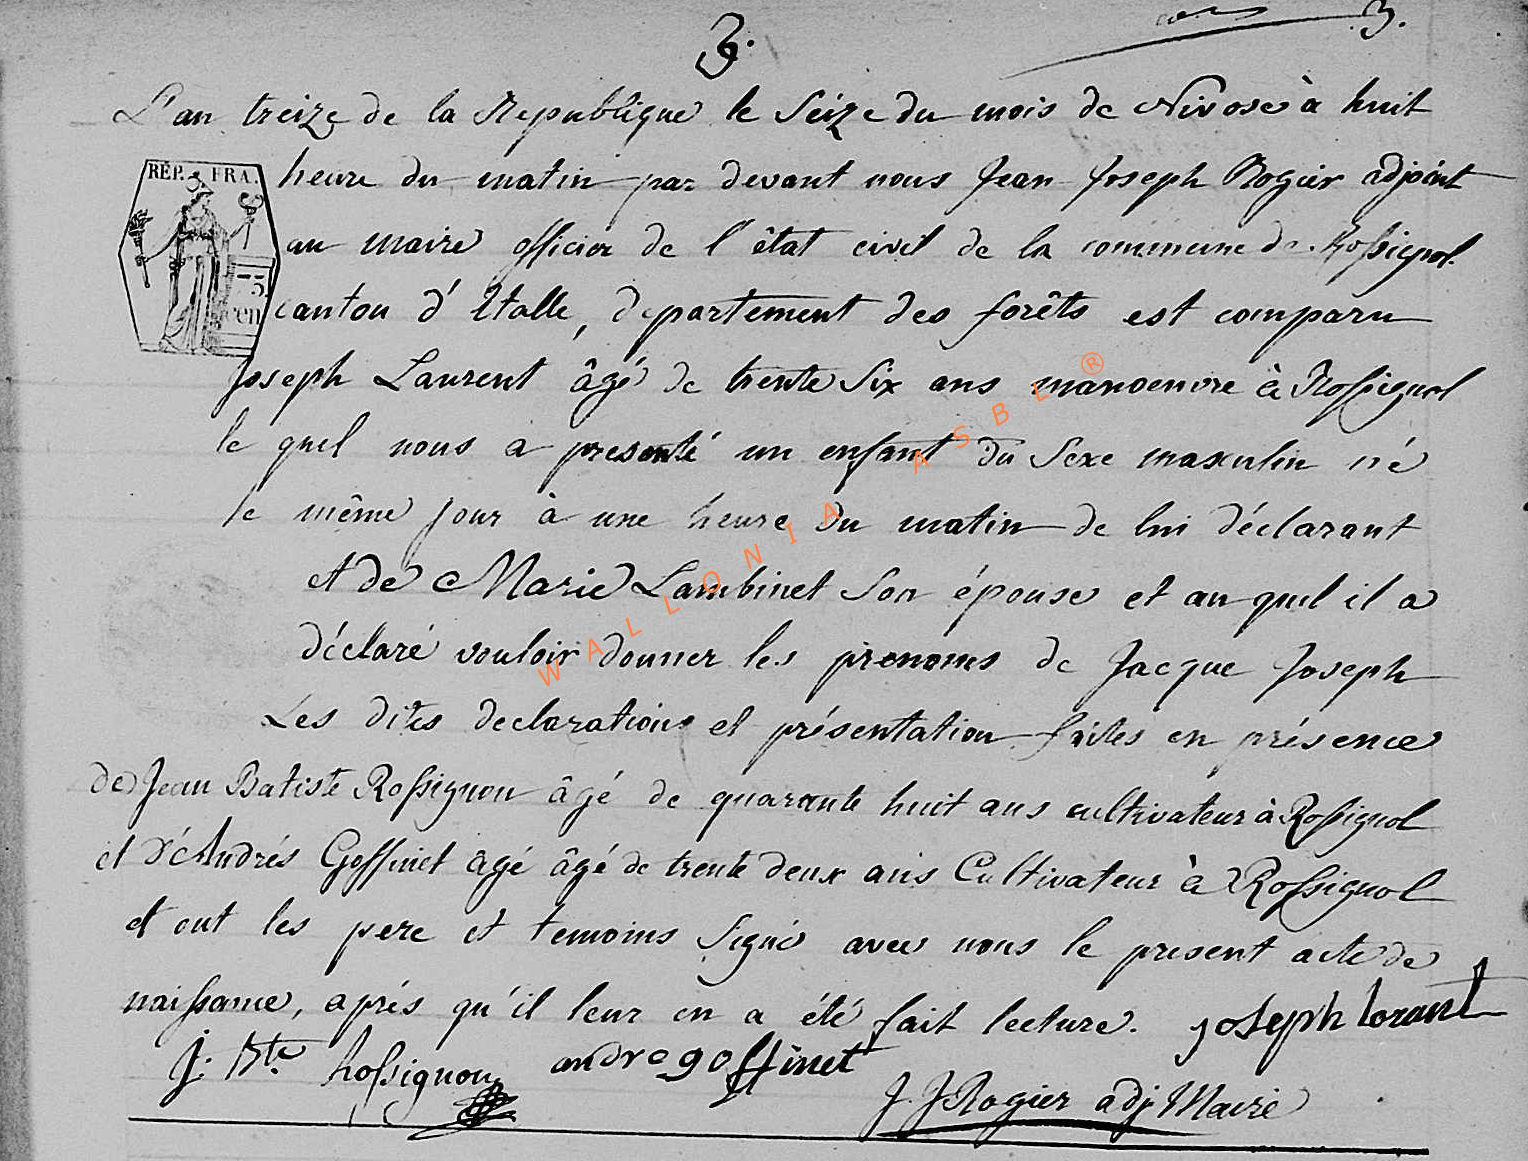 3.
3.
L'an treize de la Republique le Seize du mois de Nivose à huit
RÉP. FRA.
heure du matin par devant nous Jean Joseph Rogier adjoint
au maire officier de l'êtat civil de la commune de Rossignol
15
cen
canton d'Etalle, departement des forêts est comparu
Joseph Laurent âgé de trente Six ans manoeuvre à Rossignol
le quel nous a presenté un enfant du Sexe masculin né
le même jour à une heure du matin de lui déclarant
et de Marie Lambinet Son épouse et au quel il a
déclaré vouloir donner les prenoms de Jacque Joseph
Les dites declarations et présentation faites en présence
de Jean Batiste Rossignon âgé de quarante huit ans cultivateur à Rossignol
et d'Andrés Goffinet âgé âgé de trente deux ans Cultivateur à Rossignol
et ont les pere et temoins Signé avec nous le present acte de
naissance, aprés qu'il leur en a été fait lecture. joseph lorant
J: Bte hossignon andre goffinet
J J Rogier adj Maire
WALLONIA ASBL ®